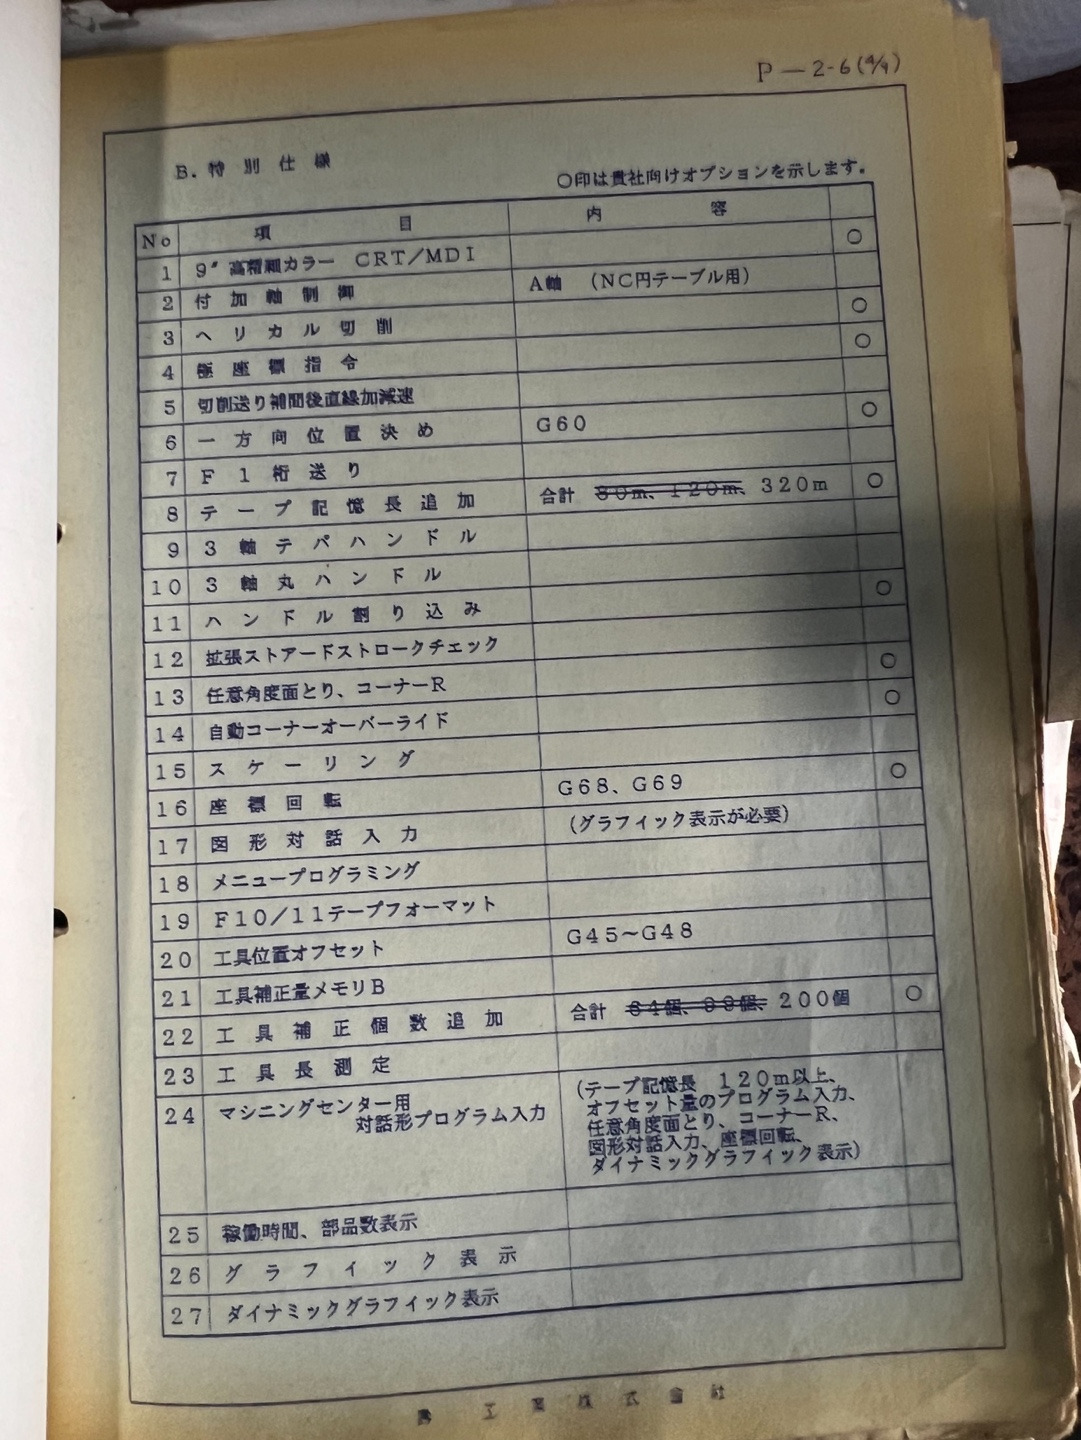 P-2-6(4/9)
B. 特別仕様
○印は貴社向けオプションを示します。
No 項目 内容
1 9″高精細カラー CRT/MDI ○
2 付加軸制御 A軸 (NC円テーブル用)
3 ヘリカル切削 ○
4 極座標指令 ○
5 切削送り補間後直線加減速
6 一方向位置決め G60 ○
7 F1桁送り
8 テープ記憶長追加 合計 80m、120m、320m ○
9 3軸テパハンドル
10 3軸丸ハンドル
11 ハンドル割り込み ○
12 拡張ストアードストロークチェック
13 任意角度面とり、コーナーR ○
14 自動コーナーオーバーライド ○
15 スケーリング
16 座標回転 G68、G69 ○
17 図形対話入力 (グラフィック表示が必要)
18 メニュープログラミング
19 F10/11テープフォーマット
20 工具位置オフセット G45~G48
21 工具補正量メモリB
22 工具補正個数追加 合計 64個、99個、200個 ○
23 工具長測定
24 マシニングセンター用
対話形プログラム入力
(テープ記憶長 120m以上、
オフセット量のプログラム入力、
任意角度面とり、コーナーR、
図形対話入力、座標回転、
ダイナミックグラフィック表示)
25 稼働時間、部品数表示
26 グラフィック表示
27 ダイナミックグラフィック表示
工業株式会社